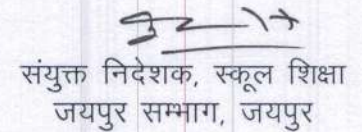 संयुक्त निदेशक, स्कूल शिक्षा
जयपुर सम्भाग, जयपुर